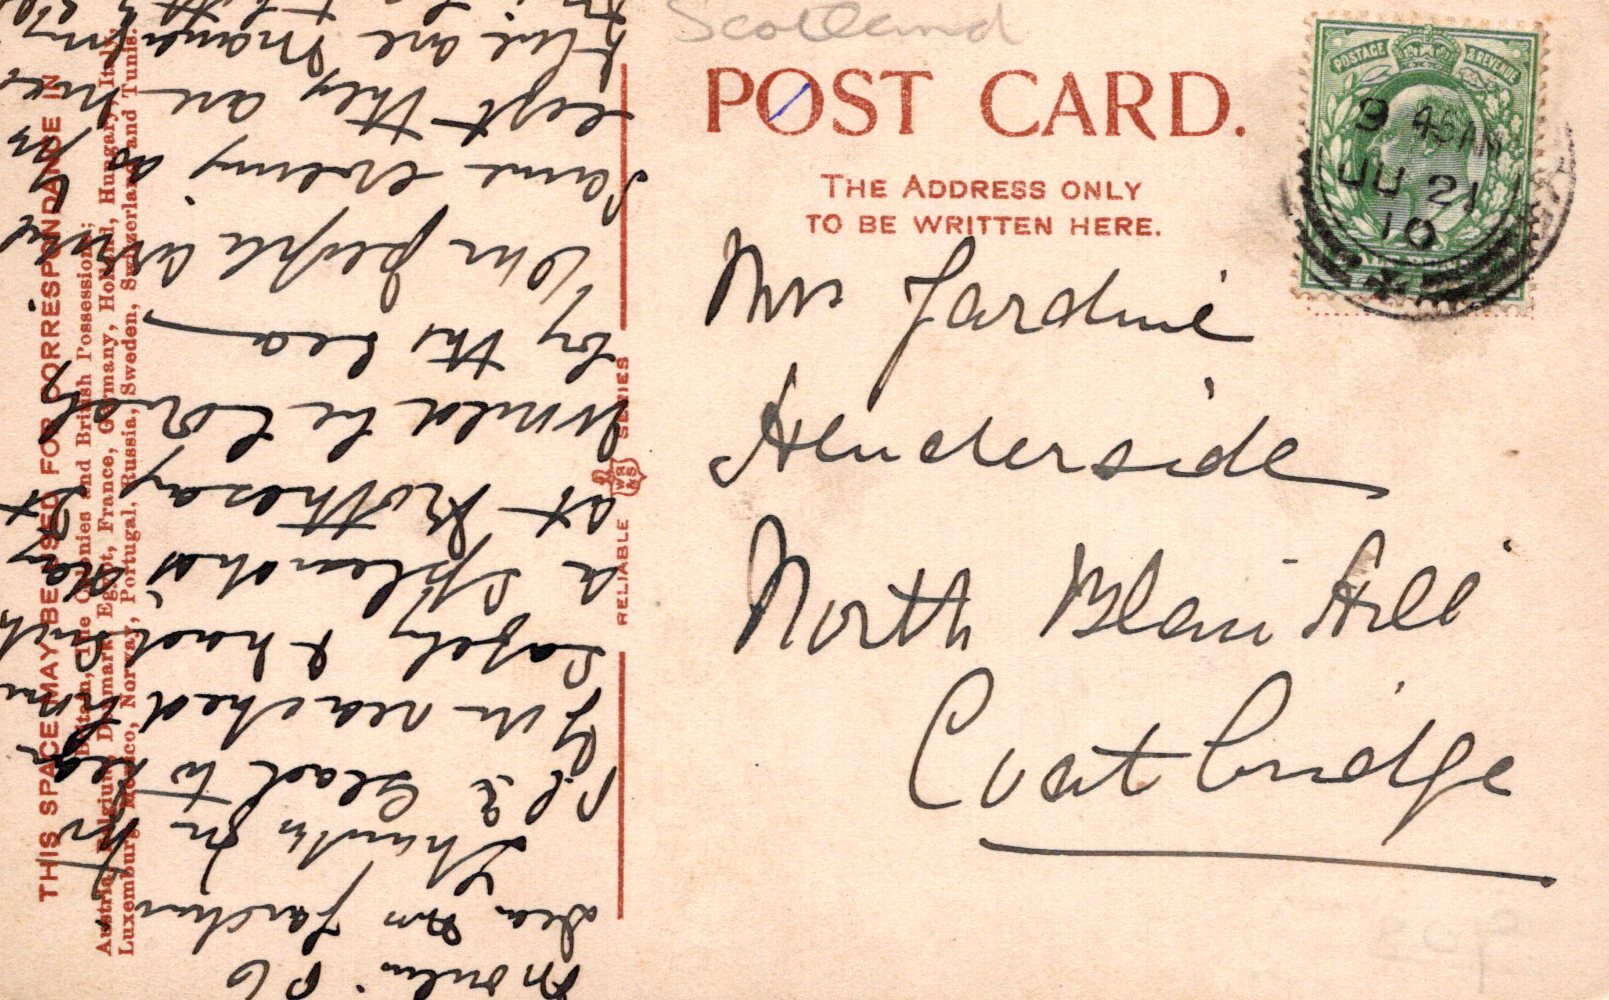 Scotland
POST CARD.
THE ADDRESS ONLY
TO BE WRITTEN HERE.
9 45 AM
JU 21
10
POSTAGE & REVENUE
Mrs Jardine
Henderside
North Blair Hill
Coatbridge
RELIABLE WR&S SERIES
THIS SPACE MAY BE USED FOR CORRESPONDANCE IN
Britain, the Colonies and British Possessions;
Austria, Belgium, Denmark, Egypt, France, Germany, Holland, Hungary, Italy,
Luxemburg, Mexico, Norway, Portugal, Russia, Sweden, Switzerland and Tunis.
Moulin
Dear Mrs Jardine
Thanks for
P.P.C. Glad to hear
you reached home
safely & had such
a splendid day
at Rothesay It
would be lovely
by the sea
Our people arrived
same evening as you
left they are